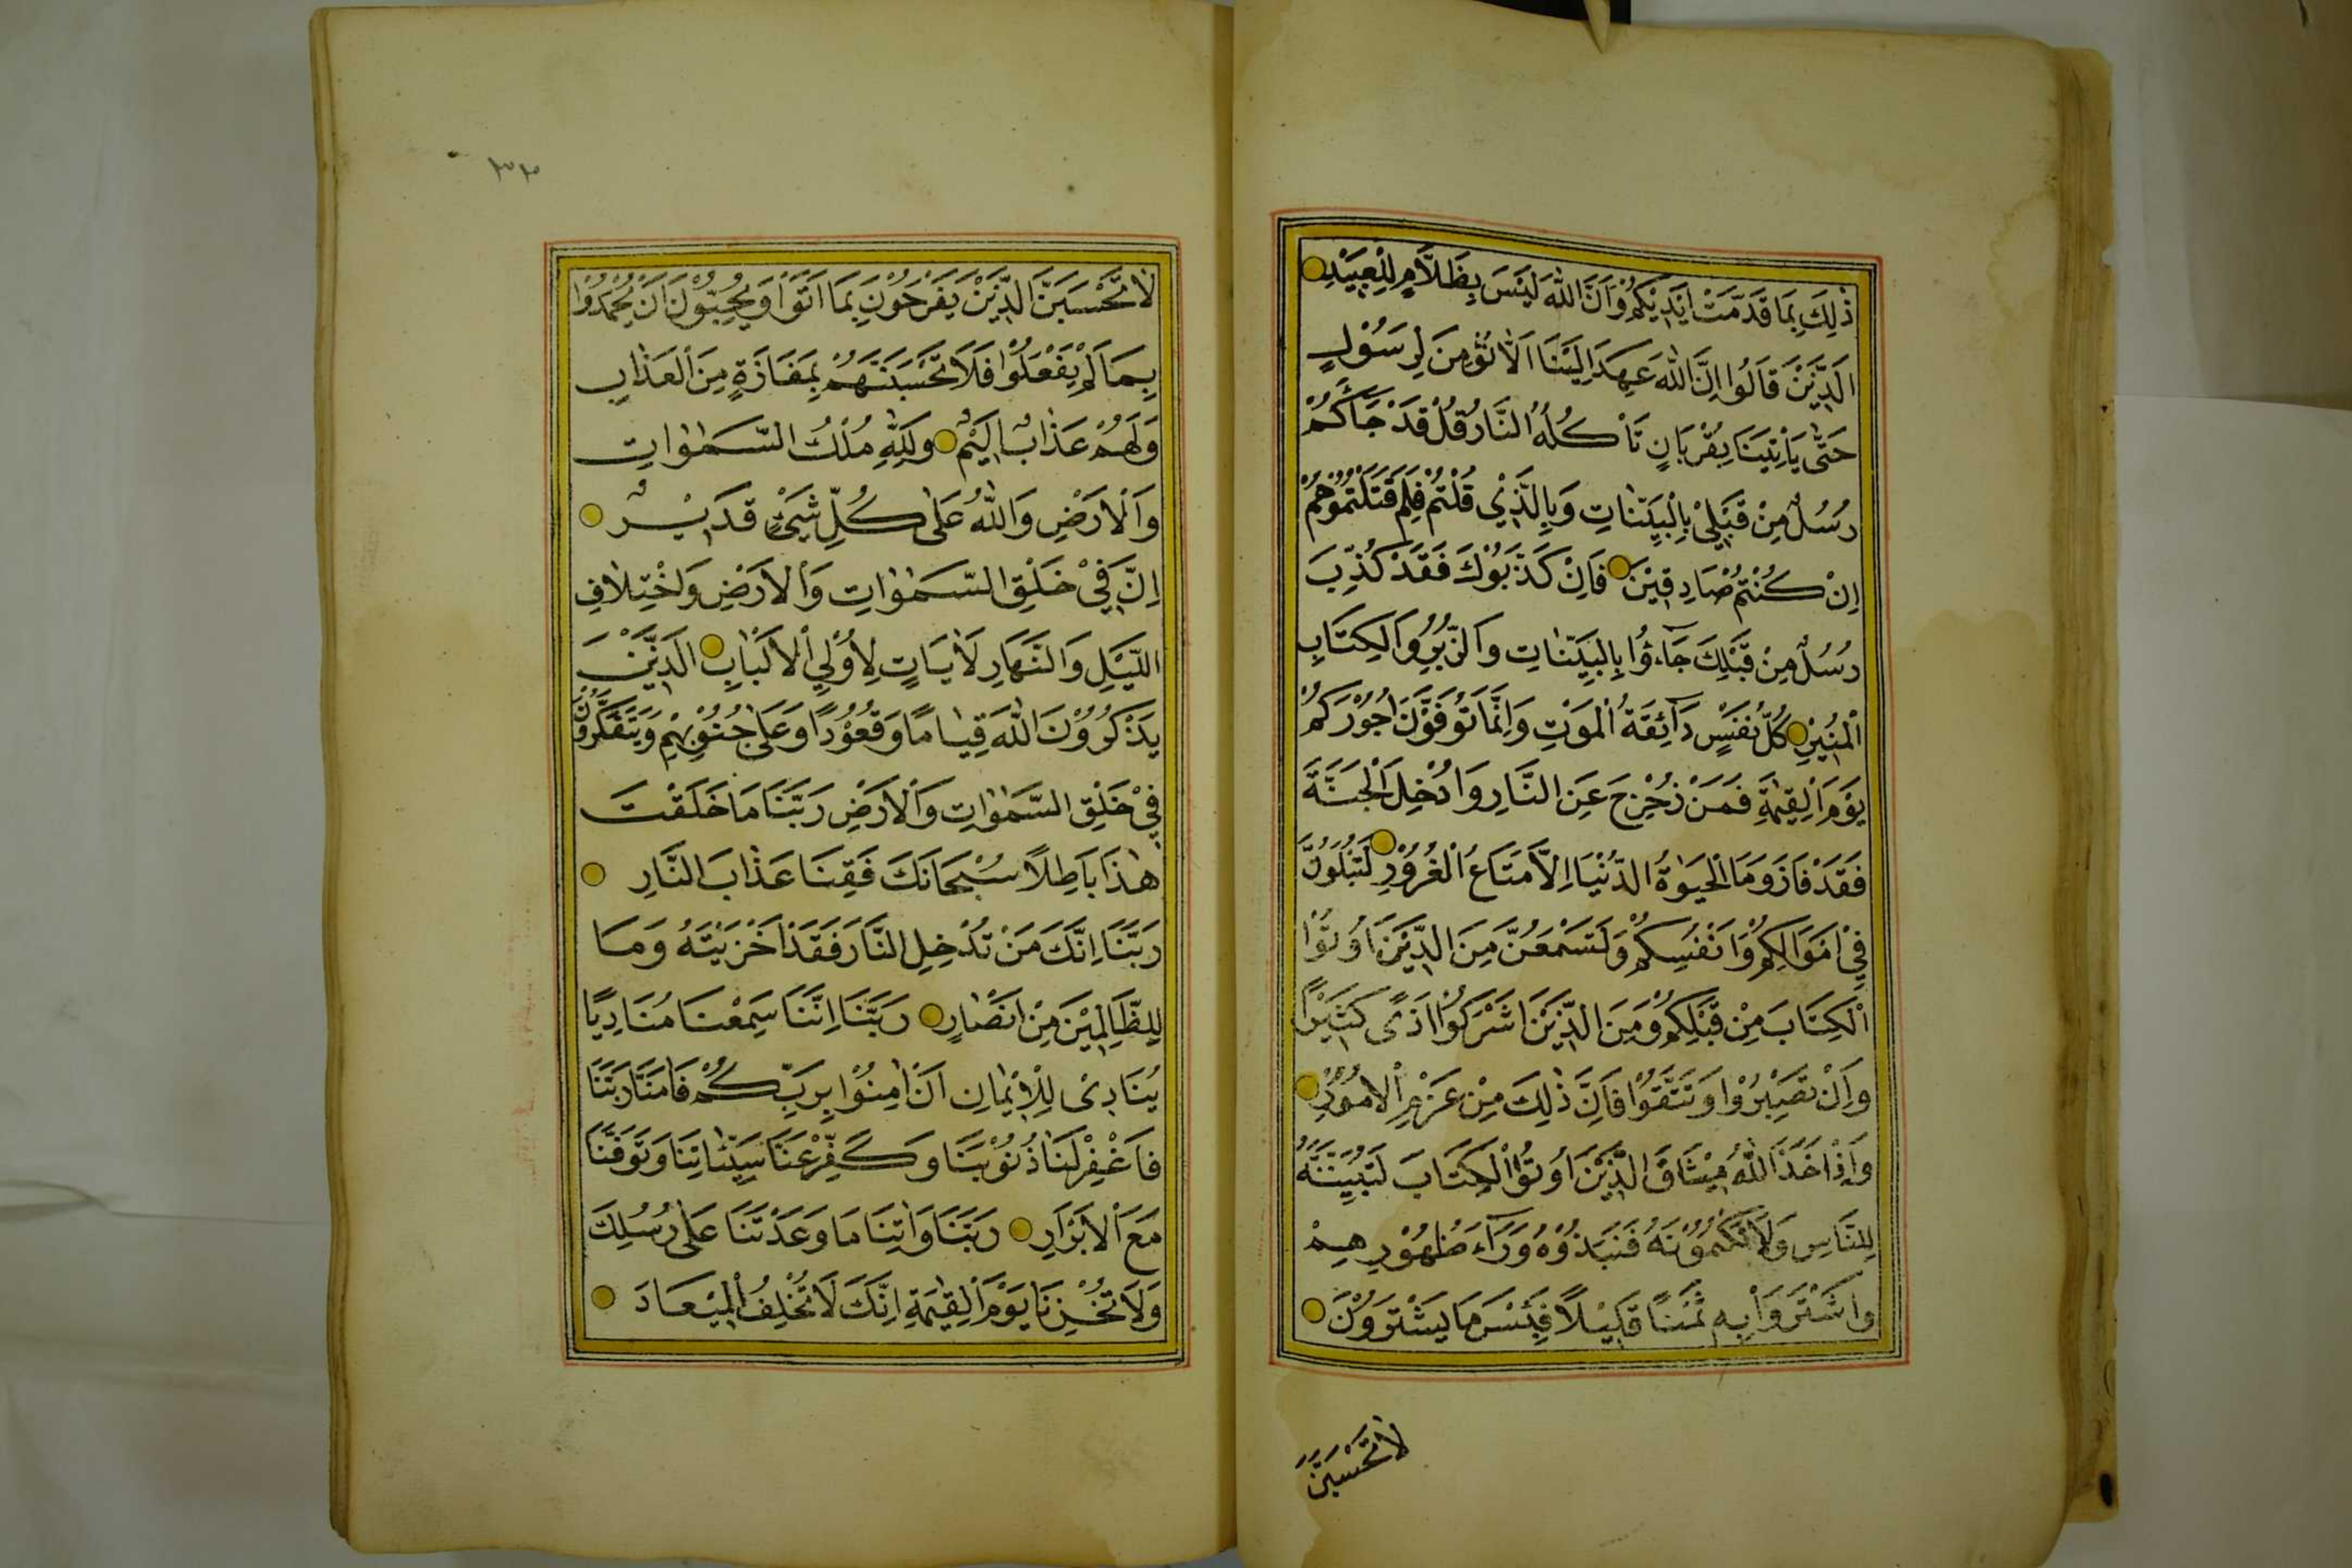 ذٰلِكَ بِمَا قَدَّمَتْ اَيْدِيْكُمْ وَاَنَّ اللّٰهَ لَيْسَ بِظَلَّامٍ لِلْعَبِيْدِ
اَلَّذِيْنَ قَالُوا اِنَّ اللّٰهَ عَهِدَ اِلَيْنَا اَلَّا نُؤْمِنَ لِرَسُوْلٍ
حَتّٰى يَاْتِيَنَا بِقُرْبَانٍ تَاْكُلُهُ النَّارُ قُلْ قَدْ جَاۤءَكُمْ
رُسُلٌ مِنْ قَبْلِيْ بِالْبَيِّنَاتِ وَبِالَّذِيْ قُلْتُمْ فَلِمَ قَتَلْتُمُوْهُمْ
اِنْ كُنْتُمْ صَادِقِيْنَ فَاِنْ كَذَّبُوْكَ فَقَدْ كُذِّبَ
رُسُلٌ مِنْ قَبْلِكَ جَاۤءُوْا بِالْبَيِّنَاتِ وَالزُّبُرِ وَالْكِتَابِ
الْمُنِيْرِ كُلُّ نَفْسٍ ذَاۤئِقَةُ الْمَوْتِ وَاِنَّمَا تُوَفَّوْنَ اُجُوْرَكُمْ
يَوْمَ الْقِيٰمَةِ فَمَنْ زُحْزِحَ عَنِ النَّارِ وَاُدْخِلَ الْجَنَّةَ
فَقَدْ فَازَ وَمَا الْحَيٰوةُ الدُّنْيَا اِلَّا مَتَاعُ الْغُرُوْرِ لَتُبْلَوُنَّ
فِيْ اَمْوَالِكُمْ وَاَنْفُسِكُمْ وَلَتَسْمَعُنَّ مِنَ الَّذِيْنَ اُوْتُوا
الْكِتَابَ مِنْ قَبْلِكُمْ وَمِنَ الَّذِيْنَ اَشْرَكُوْا اَذًى كَثِيْرًا
وَاِنْ تَصْبِرُوْا وَتَتَّقُوْا فَاِنَّ ذٰلِكَ مِنْ عَزْمِ الْاُمُوْرِ
وَاِذْ اَخَذَ اللّٰهُ مِيْثَاقَ الَّذِيْنَ اُوْتُوا الْكِتَابَ لَتُبَيِّنُنَّهُ
لِلنَّاسِ وَلَا تَكْتُمُوْنَهُ فَنَبَذُوْهُ وَرَاۤءَ ظُهُوْرِهِمْ
وَاشْتَرَوْا بِهِ ثَمَنًا قَلِيْلًا فَبِئْسَ مَا يَشْتَرُوْنَ
لَا تَحْسَبَنَّ
٣٣
لَا تَحْسَبَنَّ الَّذِيْنَ يَفْرَحُوْنَ بِمَا اَتَوْا وَيُحِبُّوْنَ اَنْ يُحْمَدُوْا
بِمَا لَمْ يَفْعَلُوْا فَلَا تَحْسَبَنَّهُمْ بِمَفَازَةٍ مِنَ الْعَذَابِ
وَلَهُمْ عَذَابٌ اَلِيْمٌ وَلِلّٰهِ مُلْكُ السَّمٰوٰاتِ
وَالْاَرْضِ وَاللّٰهُ عَلٰى كُلِّ شَيْءٍ قَدِيْرٌ
اِنَّ فِيْ خَلْقِ السَّمٰوٰاتِ وَالْاَرْضِ وَاخْتِلَافِ
اللَّيْلِ وَالنَّهَارِ لَاٰيَاتٍ لِاُوْلِي الْاَلْبَابِ اَلَّذِيْنَ
يَذْكُرُوْنَ اللّٰهَ قِيَامًا وَقُعُوْدًا وَعَلٰى جُنُوْبِهِمْ وَيَتَفَكَّرُوْنَ
فِيْ خَلْقِ السَّمٰوٰاتِ وَالْاَرْضِ رَبَّنَا مَا خَلَقْتَ
هٰذَا بَاطِلًا سُبْحَانَكَ فَقِنَا عَذَابَ النَّارِ
رَبَّنَا اِنَّكَ مَنْ تُدْخِلِ النَّارَ فَقَدْ اَخْزَيْتَهُ وَمَا
لِلظَّالِمِيْنَ مِنْ اَنْصَارٍ رَبَّنَا اِنَّنَا سَمِعْنَا مُنَادِيًا
يُنَادِيْ لِلْاِيْمَانِ اَنْ اٰمِنُوْا بِرَبِّكُمْ فَاٰمَنَّا رَبَّنَا
فَاغْفِرْ لَنَا ذُنُوْبَنَا وَكَفِّرْ عَنَّا سَيِّئَاتِنَا وَتَوَفَّنَا
مَعَ الْاَبْرَارِ رَبَّنَا وَاٰتِنَا مَا وَعَدْتَنَا عَلٰى رُسُلِكَ
وَلَا تُخْزِنَا يَوْمَ الْقِيٰمَةِ اِنَّكَ لَا تُخْلِفُ الْمِيْعَادَ